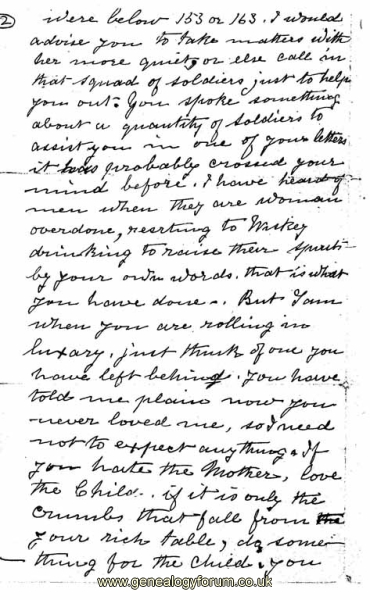 2
were below 153 or 163. I would
advise you to take matters with
her more quiet, or else call in
that squad of soldiers just to help
you out. You spoke something
about a quantity of soldiers to
assist you in one of your letters
it has probably crossed your
mind before. I have heard of
men when they are woman
overdone, resrting to Wiskey
drinking to raise their spirits
by your own words. that is what
you have done. But I am
when you are rolling in
luxary, just think of one you
have left behind. You have
told me plain now you
never loved me, so I need
not to expect anything. If
you hate the Mother, love
the Child. if it is only the
crumbs that fall from the
your rich table, do some-
thing for the child. you
www.genealogyforum.co.uk